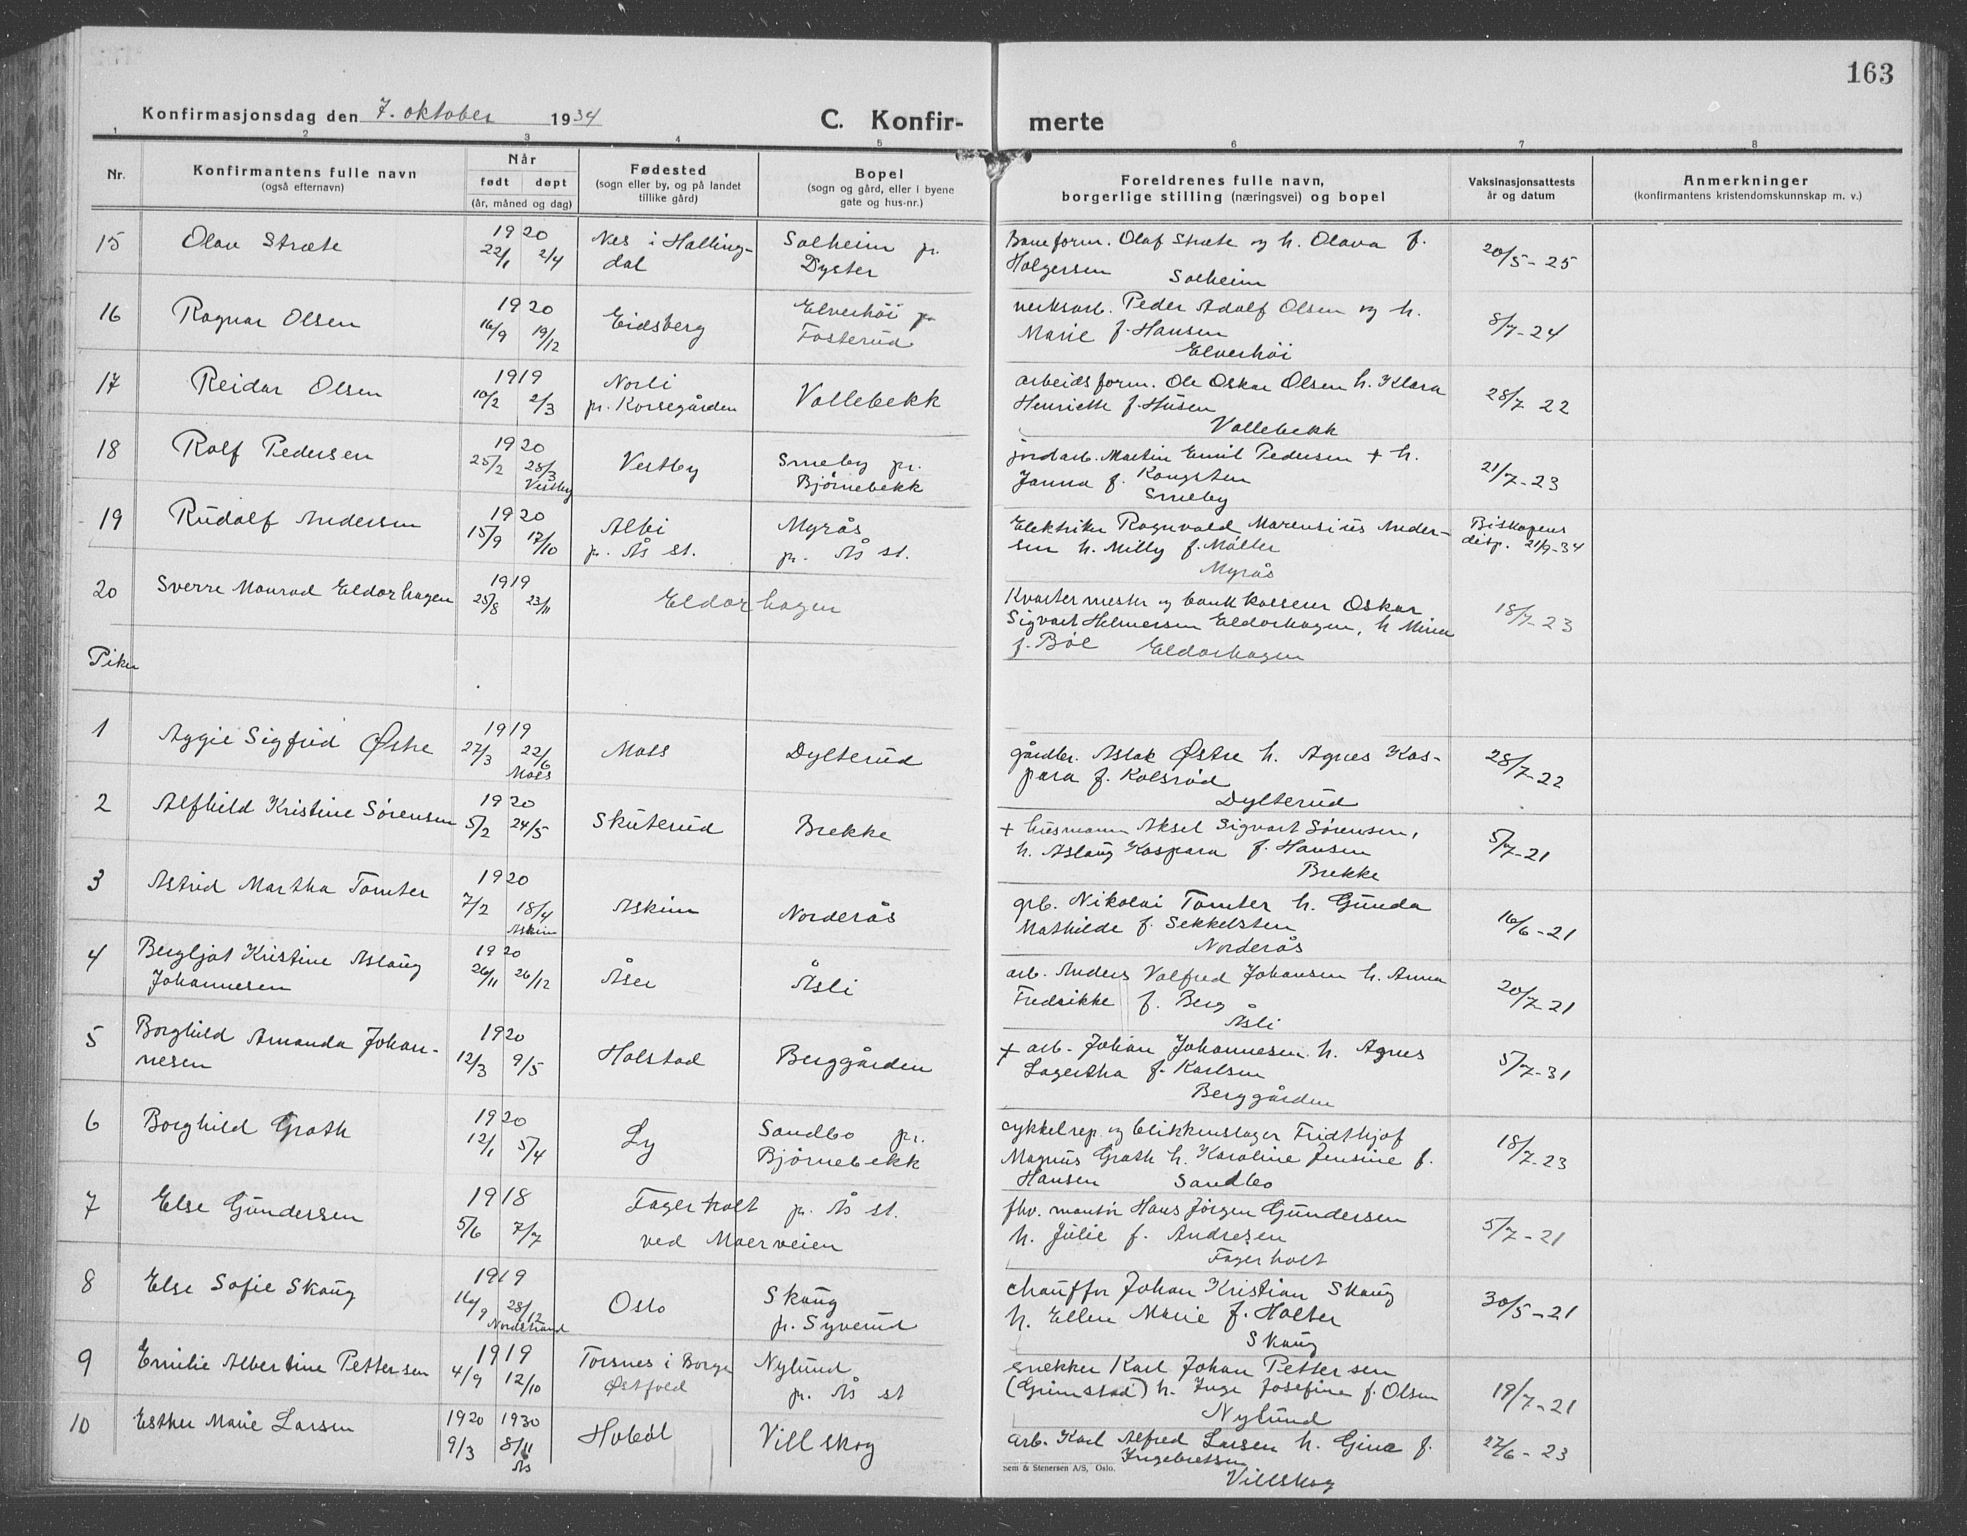 163
Konfirmasjonsdag den 7. oktober 1934
C. Konfir- merte
1 2 3 4 5 6 7 8
Nr.
Konfirmantens fulle navn
(også efternavn)
Når
født døpt
(år, måned og dag)
Fødested
(sogn eller by, og på landet
tillike gård)
Bopel
(sogn og gård, eller i byene
gate og hus-nr.)
Foreldrenes fulle navn,
borgerlige stilling (næringsvei) og bopel
Vaksinasjonsattests
år og datum
Anmerkninger
(konfirmantens kristendomskunnskap m. v.)
15 Olav Stræte 1920 22/1 2/4 Nes i Halling-
dal Solheim pr.
Dyster Baneform. Olaf Stræte og h. Olava f.
Holgersen Solheim 20/5-25
16 Ragnar Olsen 1920 16/9 19/12 Eidsberg Elverhöi pr.
Fosterud verksarb. Peder Adolf Olsen og h.
Marie f. Hansen
Elverhöi 8/7-24
17 Reidar Olsen 1919 10/2 2/3 Norli
pr. Korsegården Vollebekk arbeidsform. Ole Oskar Olsen h. Klara
Henriette f. Husen
Vollebekk 28/7 22
18 Rolf Pedersen 1920 25/2 28/3
Vestby Vestby Smeby pr.
Bjørnebekk jordarb. Martin Emil Pedersen + h.
Janna f. Kongsten
Smeby 21/7-23
19 Rudolf Andersen 1920 15/9 17/10 Albi
pr. Ås st. Myrås
pr. Ås st. Elektriker Ragnvald Marensius Ander-
sen h. Milly f. Møller
Myrås Biskopens
disp. 21/9-34
20 Sverre Monrad Eldorhagen 1919 25/8 23/11 Eldorhagen Kvartermester og bankkasserer Oskar
Sigvart Helmersen Eldorhagen, h Mina
f. Böl Eldorhagen 18/7-23
Piker
1 Aggie Sigfrid Østre 1919 27/3 22/6
Moss Moss Dylterud gårdbr. Aslak Østre h. Agnes Kas-
para f. Kolsrød
Dylterud 28/7-22
2 Alfhild Kristine Sørensen 1920 5/2 24/5 Skuterud Brekke + husmann Aksel Sigvart Sørensen,
h. Aslaug Kaspara f. Hansen
Brekke 5/7-21
3 Astrid Martha Tomter 1920 7/2 18/4
Askim Askim Norderås grb. Nikolai Tomter h. Gunda
Mathilde f. Sekkelsten
Norderås 16/6-21
4 Bergljot Kristine Aslaug
Johannesen 1920 26/11 26/12 Åser Åsli arb. Anders Valfred Johansen h. Anna
Fredrikke f. Berg
Åsli 20/7-21
5 Borghild Amanda Johan-
nesen 1920 12/3 9/5 Holstad Berggården + arb. Johan Johannesen h. Agnes
Lagertha f. Karlsen
Berggården 5/7-31
6 Borghild Groth 1920 12/1 5/4 Ly Sandbo pr.
Bjørnebekk cykkelrep. og blikkenslager Fridthjof
Magnus Groth h. Karoline Jensine f.
Hansen Sandbo 18/7-23
7 Else Gundersen 1918 5/6 7/7 Fagerholt pr. Ås st.
ved Moerveien fhv. montör Hans Jörgen Gundersen
h. Julie f. Andresen
Fagerholt 5/7-21
8 Else Sofie Skaug 1919 16/9 28/12
Nordstrand Oslo Skaug
pr. Syverud chauffør Johan Kristian Skaug
h. Ellen Marie f. Holter
Skaug 30/5-21
9 Emilie Albertine Pettersen 1919 4/9 12/10 Torsnes i Borge
Østfold Nylund
pr. Ås st snekker Karl Johan Pettersen
(Grimstad) h. Inga Josefine f. Olsen
Nylund 19/7-21
10 Esther Marie Larsen 1920 1930
9/3 8/11
Ås Hobøl Villskog arb. Karl Alfred Larsen h. Gina f.
Ingebretsen
Villskog 27/6-23
Sem & Stenersen A/S, Oslo.